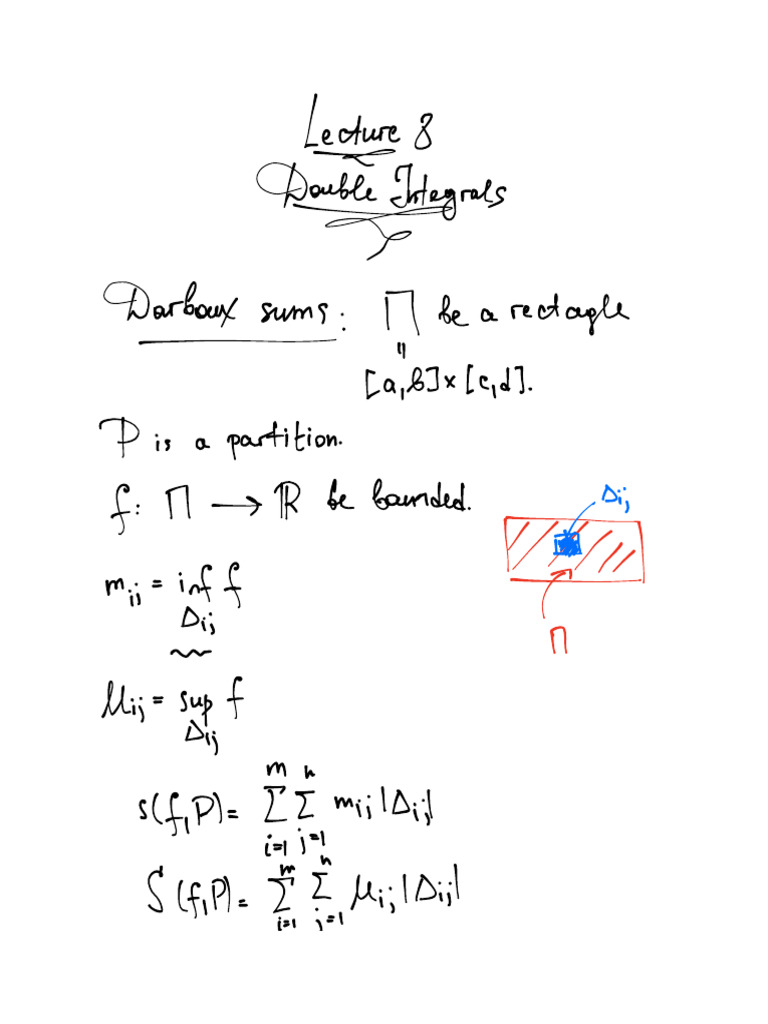 Lecture 8
Double Integrals
Darboux sums: Π be a rectagle
"
[a,b]×[c,d].
P is a partition.
f: Π ⟶ ℝ be bounded.
Δij
mij = inf f
Δij
Π
Mij = sup f
Δij
m n
s(f,P)= ΣΣ mij |Δij|
i=1 j=1
m n
S(f,P)= Σ Σ Mij |Δij|
i=1 j=1